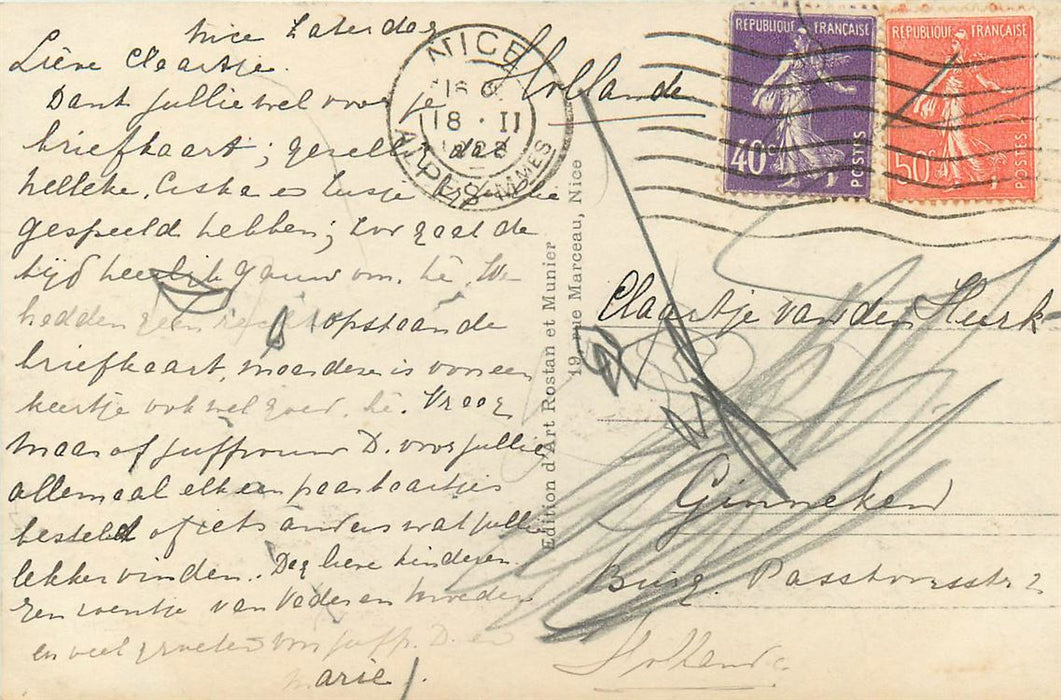 Nice Zaterdag
Lieve Claartje.
Dank jullie wel voor je
briefkaart; gezell
Helleke, Ciska en Zusje
gespeeld hebben; Zoo gaat de
tijd heerlijk gauw om. hè. We
hadden geen
opstaande
briefkaart, maar deze is voor een
keertje ook wel goed. hè. Vraag
maar of juffrouw D. voor jullie
allemaal elk een paar taartjes
besteld of iets anders wat jullie
lekker vinden. Dag lieve kinderen
een zoentje van Vader en Moeder
en veel groeten voor juff. D. en
Marie!
NICE
18 · II
ALPES-MMES
Hollande
REPUBLIQUE FRANÇAISE
40c
POSTES
REPUBLIQUE FRANÇAISE
50c
POSTES
Edition d'Art Rostan et Munier
19, rue Marceau, Nice
Claartje van den Heurk
Ginneken
Burg. Passtoorsstr 2
Hollande